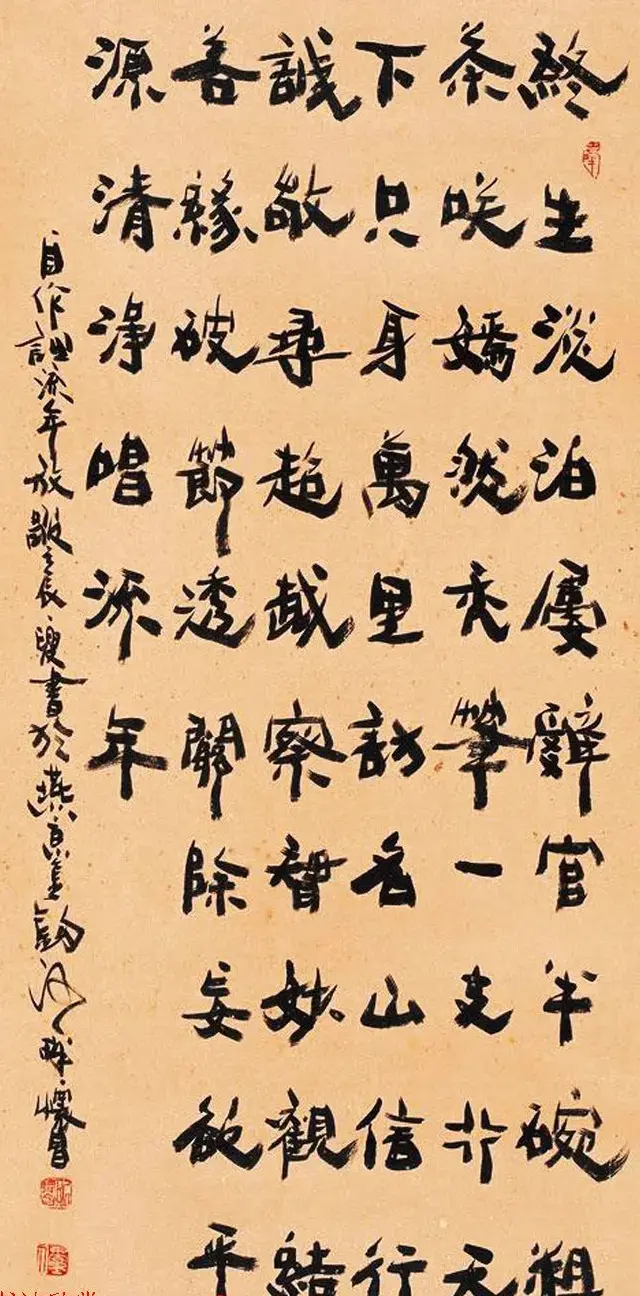 終生淡泊屢辭官半碗粗
茶咲嫣然禿筆一支行天
下只身萬里訪名山信行
誠敬尋超越察智妙觀結
善緣破節透關除妄欲平
源清淨唱流年
自作詞流年放歌之書於燕京